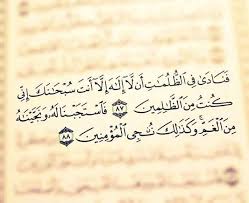 فَنَادَىٰ فِي الظُّلُمَاتِ أَن لَّا إِلَٰهَ إِلَّا أَنتَ سُبْحَانَكَ إِنِّي
كُنتُ مِنَ الظَّالِمِينَ ٨٧ فَاسْتَجَبْنَا لَهُ وَنَجَّيْنَاهُ
مِنَ الْغَمِّ وَكَذَٰلِكَ نُنجِي الْمُؤْمِنِينَ ٨٨